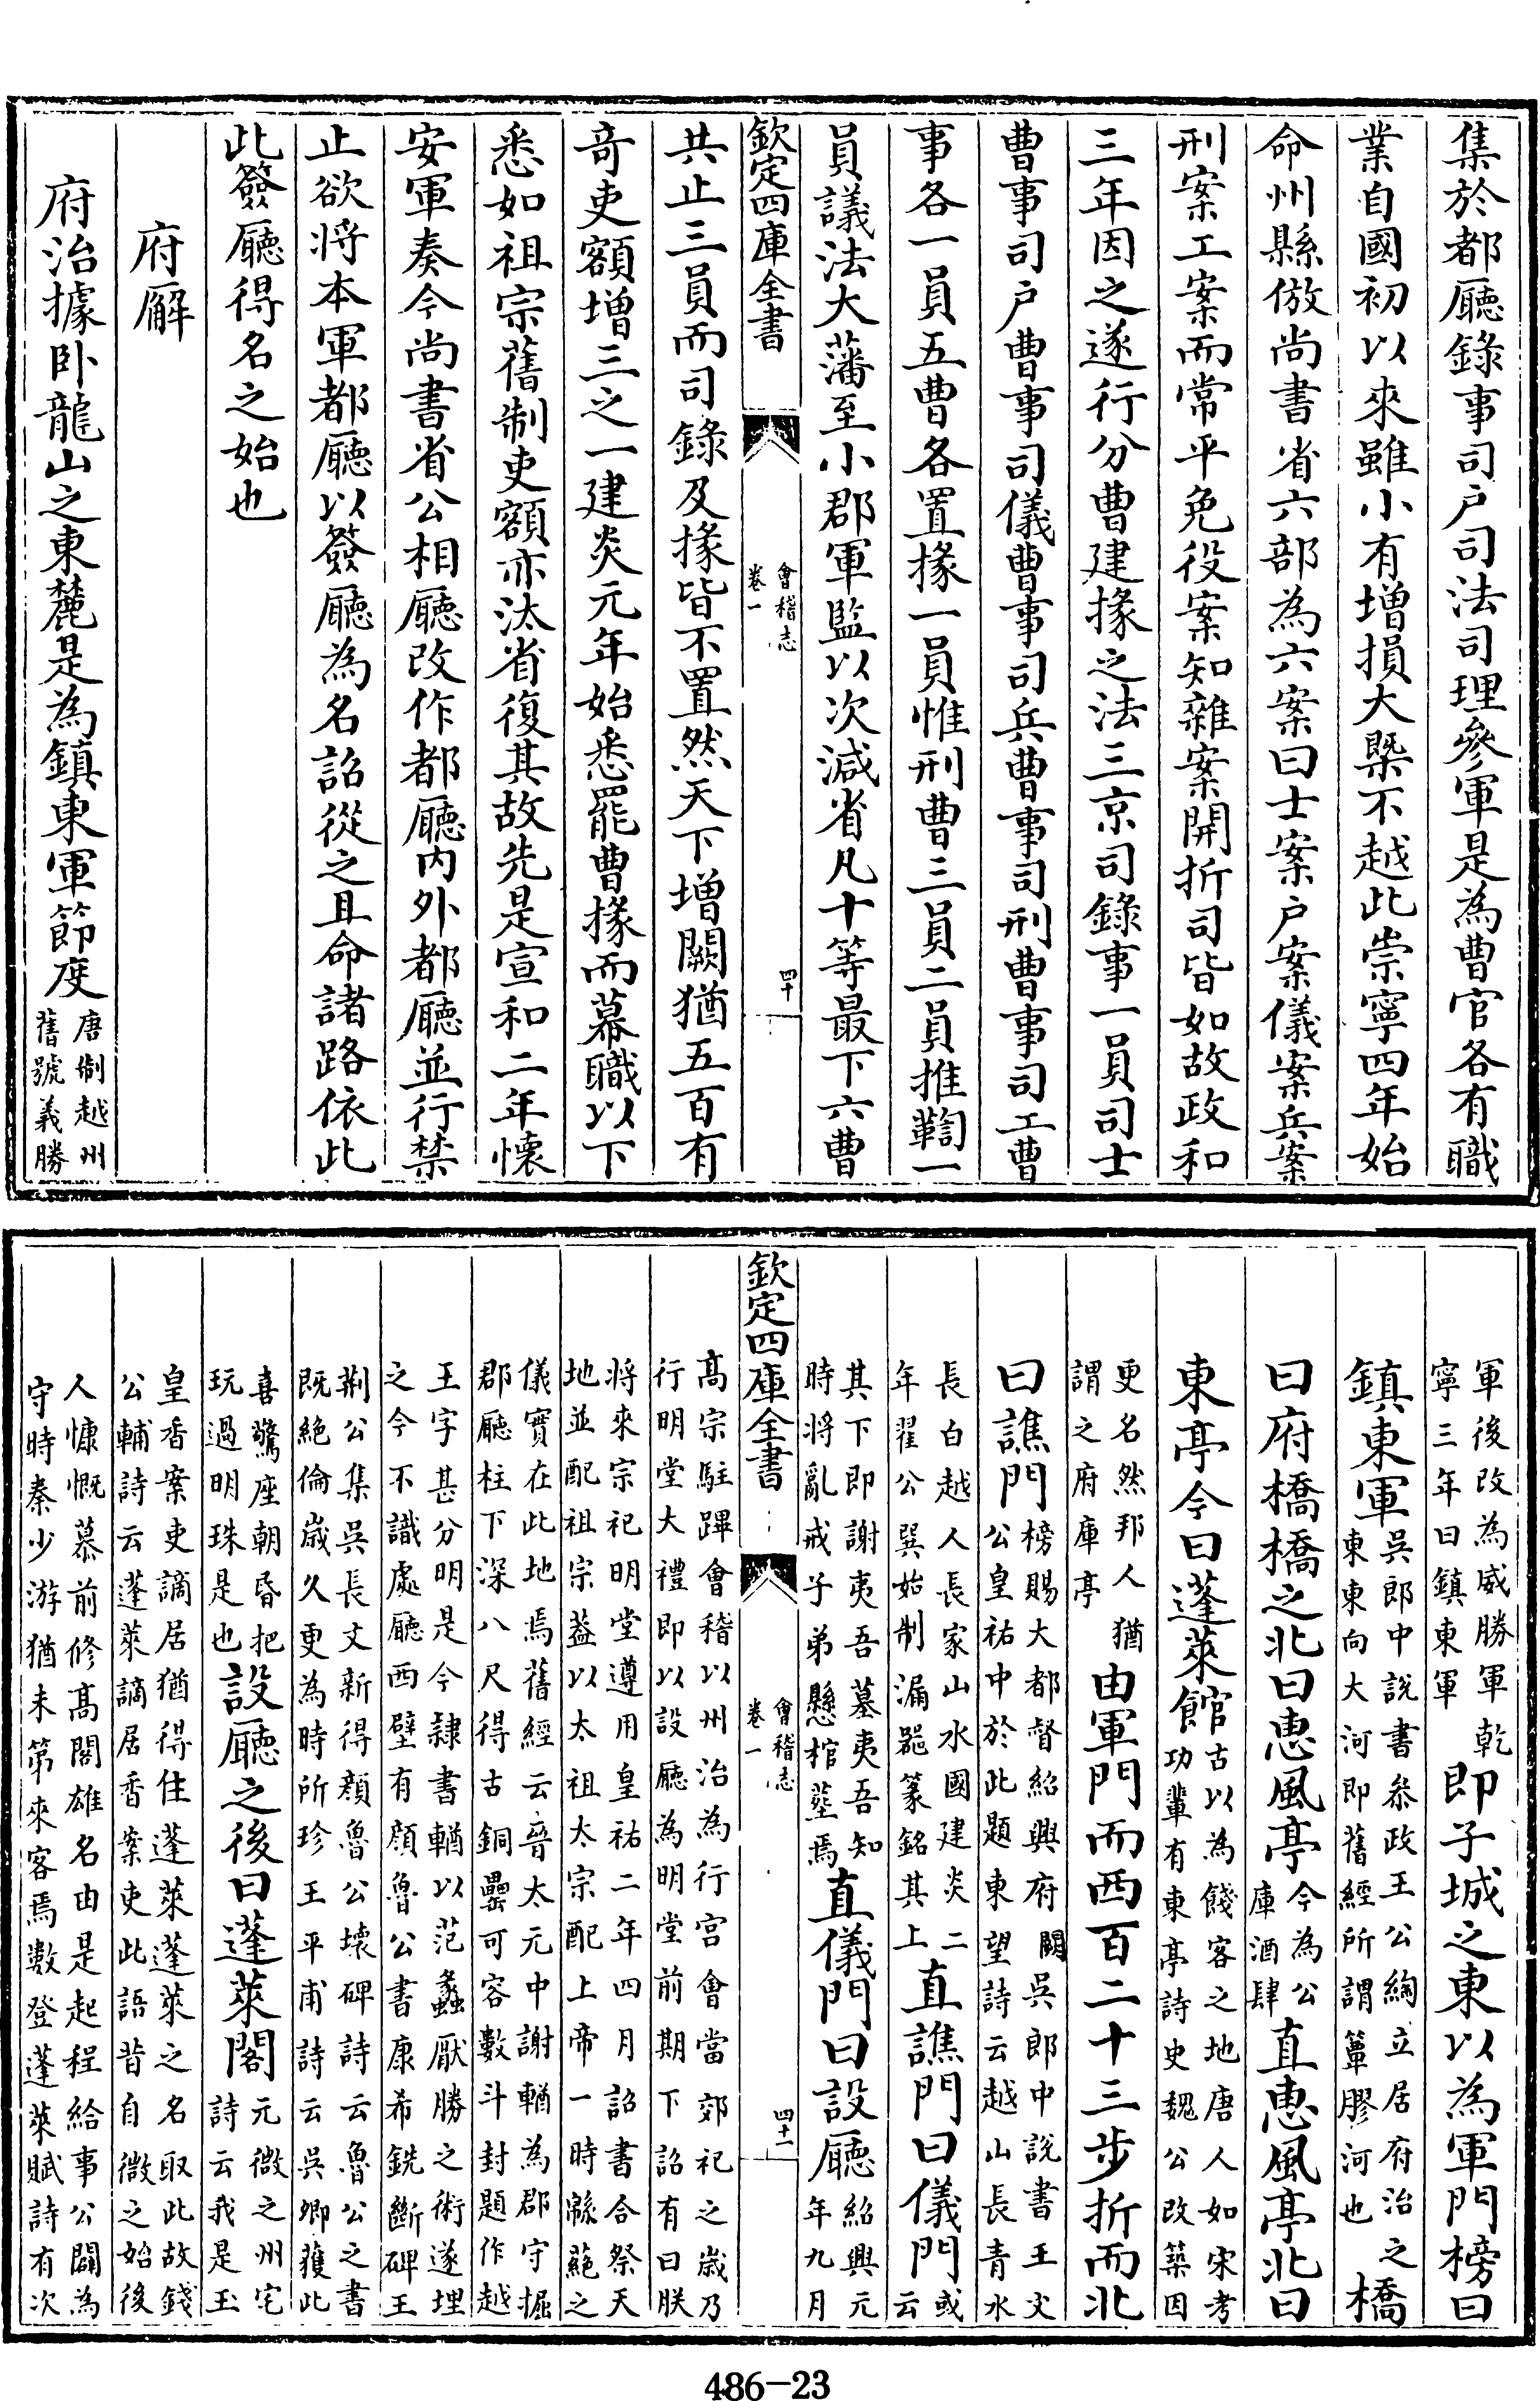 集於都廳錄事司户司法司理參軍是為曹官各有職
業自國初以來雖小有增損大槩不越此崇寧四年始
命州縣倣尚書省六部為六案曰士案户案儀案兵案
刑案工案而常平免役案知雜案開折司皆如故政和
三年因之遂行分曹建掾之法三京司錄事一員司士
曹事司户曹事司儀曹事司兵曹事司刑曹事司工曹
事各一員五曹各置掾一員惟刑曹三員二員推鞫一
員議法大藩至小郡軍監以次減省凡十等最下六曹
欽定四庫全書
會稽志
卷一
四十
共止三員而司錄及掾皆不置然天下增闕猶五百有
奇吏額増三之一建炎元年始悉罷曹掾而幕職以下
悉如祖宗舊制吏額亦汰省復其故先是宣和二年懷
安軍奏今尚書省公相廳改作都廳内外都廳並行禁
止欲將本軍都廳以簽廳為名詔從之且命諸路依此
此簽廳得名之始也
府廨
府治據卧龍山之東麓是為鎮東軍節度
唐制越州
舊號義勝
軍後改為威勝軍乾
寧三年曰鎮東軍
即子城之東以為軍門榜曰
鎮東軍
吳郎中說書叅政王公綯立居府治之
東東向大河即舊經所謂簟膠河也
橋
曰府橋橋之北曰惠風亭
今為公
庫酒肆
直惠風亭北曰
東亭今曰蓬萊館
古以為餞客之地唐人如宋考
功輩有東亭詩史魏公改築因
更名然邦人猶
謂之府庫亭
由軍門而西百二十三步折而北
曰譙門
榜賜大都督紹興府闕吳郎中說書王文
公皇祐中於此題東望詩云越山長青水
長白越人長家山水國建炎二
年翟公巽始制漏噐篆銘其上
直譙門曰儀門
或
云
其下即謝夷吾墓夷吾知
時將亂戒子弟懸棺塟焉
直儀門曰設廳
紹興元
年九月
髙宗駐蹕會稽以州治為行宫會當郊祀之嵗乃
行明堂大禮即以設廳為明堂前期下詔有曰朕
將來宗祀明堂遵用皇祐二年四月詔書合祭天
地並配祖宗葢以太祖太宗配上帝一時緜蕝之
儀實在此地焉舊經云晉太元中謝輶為郡守掘
郡廳柱下深八尺得古銅罍可容數斗封題作越
王字甚分明是今隷書輶以范蠡厭勝之術遂埋
之今不識處廳西壁有顔魯公書康希銑斷碑王
荆公集吳長文新得顔魯公壞碑詩云魯公之書
既絶倫嵗久更為時所珍王平甫詩云吳卿獲此
喜驚座朝昏把
玩過明珠是也
設廳之後曰蓬萊閣
元微之州宅
詩云我是玉
皇香案吏謫居猶得住蓬萊蓬萊之名取此故錢
公輔詩云蓬萊謫居香案吏此語昔自微之始後
人慷慨慕前修髙閣雄名由是起程給事公闢為
守時秦少游猶未第來客焉數登蓬萊賦詩有次
486-23